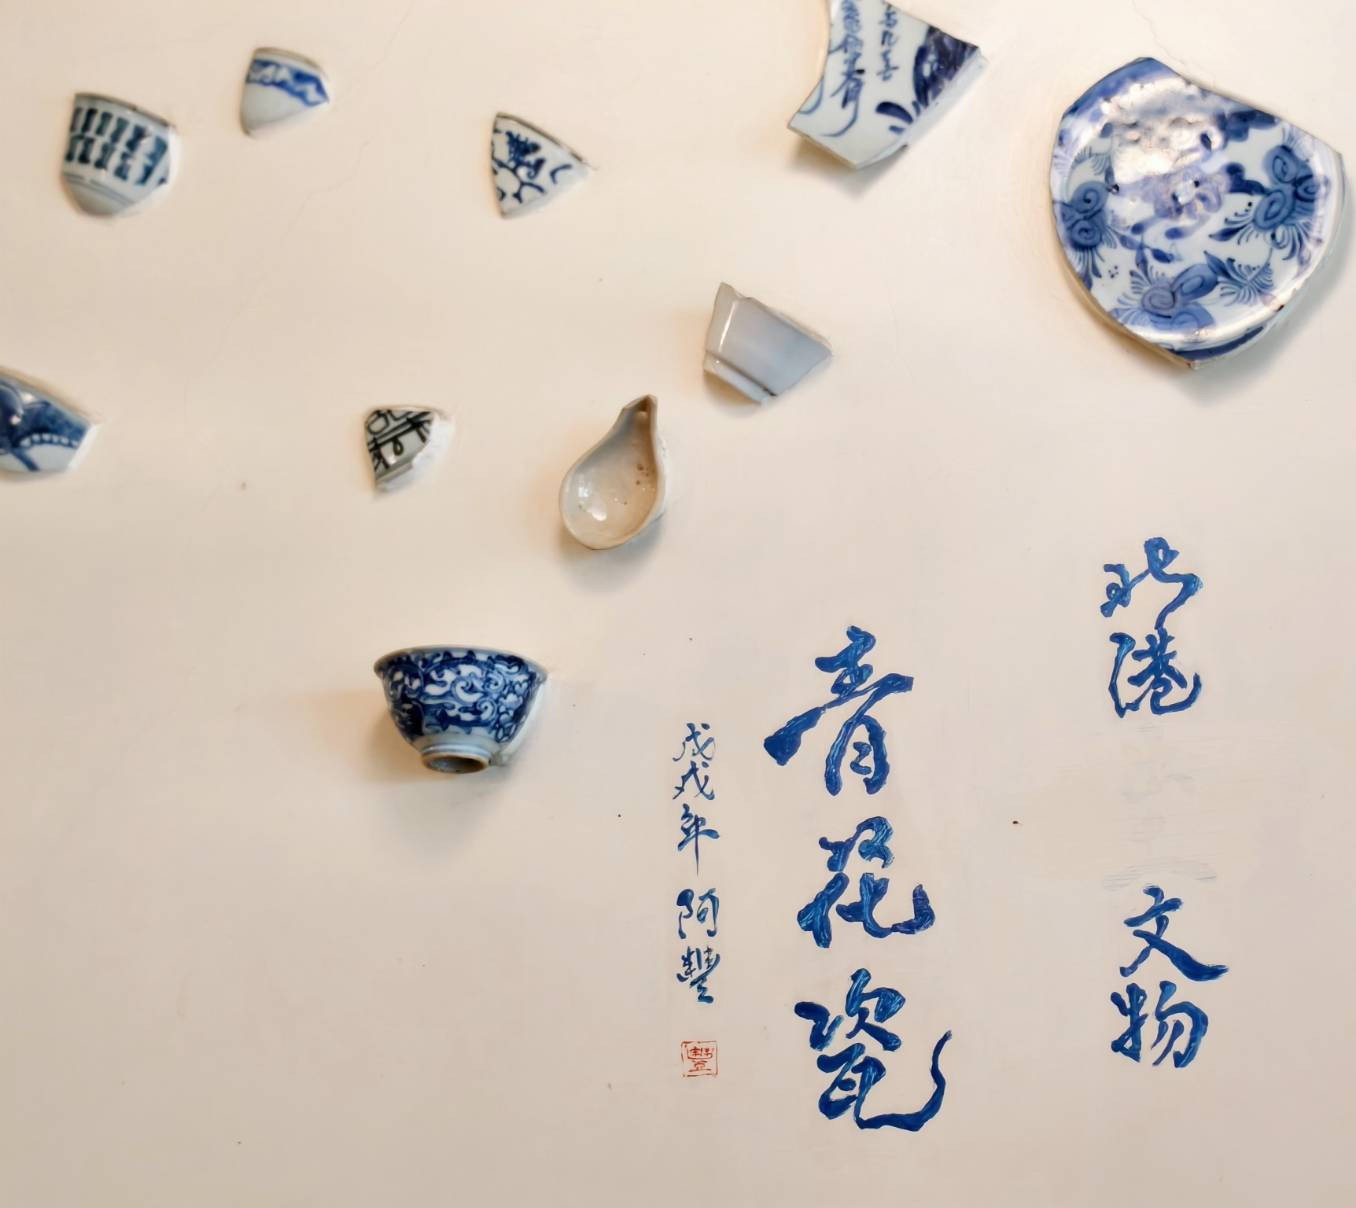 北港 文物
青花瓷
戊戌年 阿豐
豐